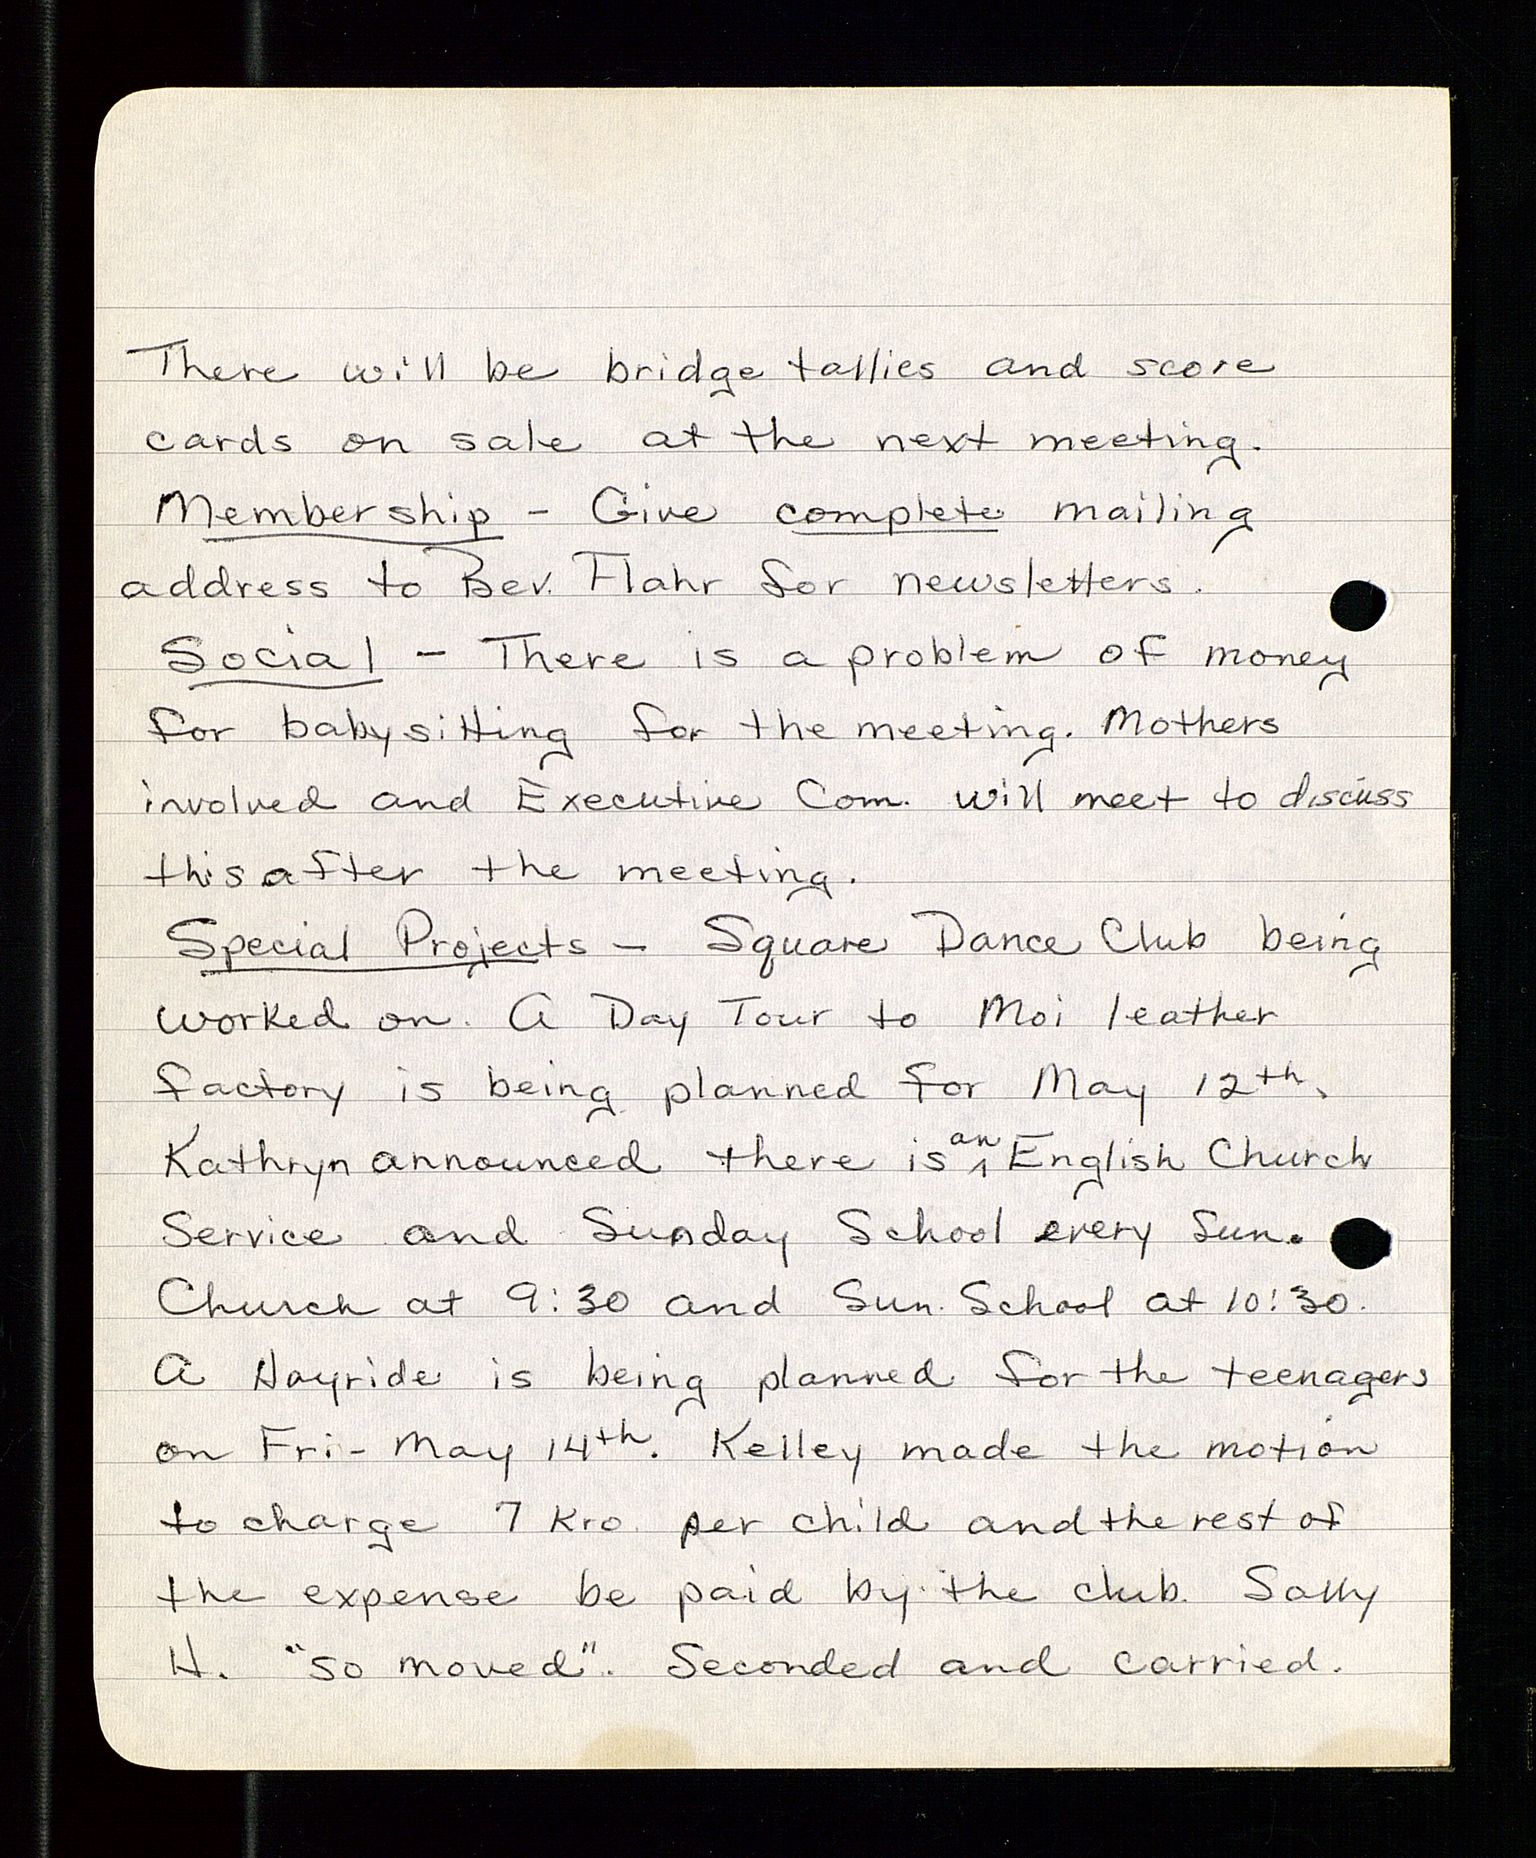 There will be bridge tallies and score
cards on sale at the next meeting.
Membership - Give complete mailing
address to Bev. Flahr for newsletters.
Social - There is a problem of money
for babysitting for the meeting. Mothers
involved and Executive Com. will meet to discuss
this after the meeting.
Special Projects - Square Dance Club being
worked on. A Day Tour to Moi leather
factory is being planned for May 12th.
Kathryn announced there is an English Church
Service and Sunday School every Sun.
Church at 9:30 and Sun. School at 10:30.
A Hayride is being planned for the teenagers
on Fri- May 14th. Kelley made the motion
to charge 7 Kro. per child and the rest of
the expense be paid by the club. Sally
H. "so moved". Seconded and carried.